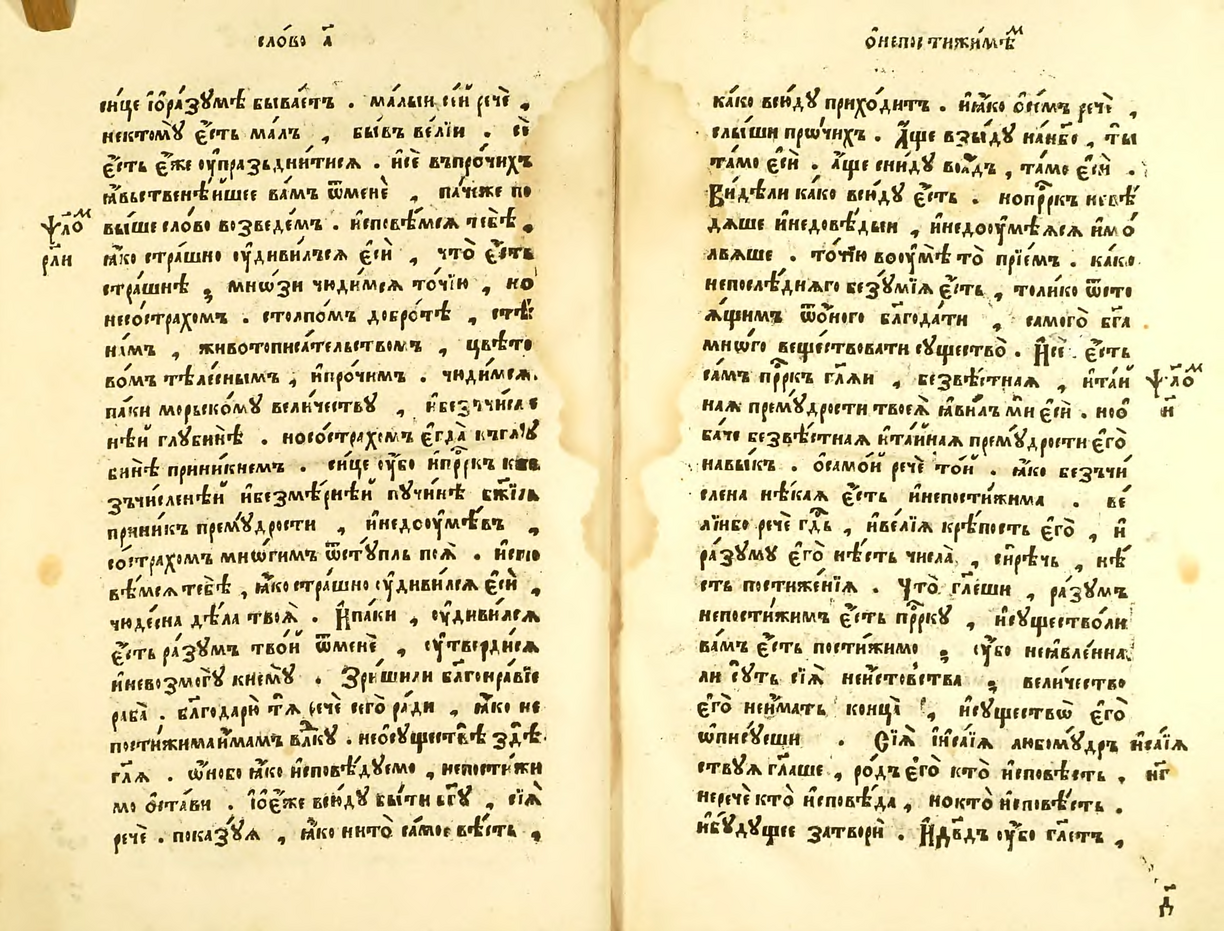 сло́во а҃
си́це і҆ѡ҆ра́зꙋмѣ быва́етъ . ма́лыи се́й речѐ ,
некто́мꙋ є҆́сть ма́лъ , бы́въ ве́лїи . сѐ
є҆́сть є҆́же оу҆празьдни́тисѧ . и҆сѐ въпро́чихъ
ꙗ҆́вьственѣ́йшее ва́мъ ѿменѐ , па́чѐже по
вы́ше сло́во возведе́мъ . и҆сповѣ́мсѧ тебѣ̀ ,
ꙗ҆́ко стра́шно оу҆диви́лъсѧ є҆сѝ , что̀ є҆́сть
стра́шнѣ ; мно́зи чюди́мсѧ то́чїю , но
несо́страхомъ . столпо́мъ добро́тѣ , стѣ́
на́мъ , животописа́тельствомъ , цвѣто
во́мъ тѣле́снымъ , и҆про́чимъ . чюди́мсѧ
па́ки морьско́мꙋ вели́чествꙋ , и҆безъчи́сле
нѣ́й глꙋбинѣ̀ . носо́страхомъ є҆гда̀ къглꙋ
бинѣ̀ прини́кнемъ . си́це оу҆́бо и҆прⷪ҇ркъ къбе
зъчи́сленѣй и҆безмѣ́рнѣй пꙋчи́нѣ бж҃їѧ
прини́къ премꙋ́дрости , и҆недооумѣ́въ ,
со́страхомъ мно́гимъ ѿстꙋ́пль поѧ̀ . и҆спо
вѣ́мсѧ тебѣ̀ , ꙗ҆́ко стра́шно оу҆диви́лсѧ є҆сѝ ,
чюде́сна дѣ́ла твоѧ̀ . И҆па́ки , оу҆диви́лсѧ
є҆́сть ра́зꙋмъ тво́й ѿменѐ , оу҆тверди́сѧ
и҆невозмогꙋ̀ кнемꙋ̀ . Зри́шили бл҃гонра́вїе
раба̀ . бл҃годарю̀ тѧ̀ речѐ сегѡ̀ ра́ди , ꙗ҆́ко не
постижи́маи҆́мамъ влⷣкꙋ . нео҆сꙋществѣ̀ здѣ̀
гл҃ѧ . ѡ҆но́бо ꙗ҆́ко и҆сповѣ́дꙋемо , непостижи́
мо ѡ҆ста́ви . і҆ѡ҆є҆́же всю́дꙋ бы́ти бг҃ꙋ , сїѧ̀
речѐ . пока́зꙋѧ , ꙗ҆́ко нито̀ са́мое вѣ́сть ,
ѱало́ⷨ
рл҃и
ѡ҆непостижи́мѣⷨ
ка́ко всю́дꙋ прихо́дитъ . и҆ꙗ҆́ко ѡ҆се́мъ речѐ ,
слы́ши про́чихъ . А҆́ще взы́дꙋ нане́бо , ты̀
та́мо є҆сѝ . а҆́ще сни́дꙋ воа҆́дъ , та́мо є҆сѝ .
Ви́дѣли ка́ко всю́дꙋ є҆́сть . нопрⷪ҇ркъ невѣ́
дѧше и҆недовѣ́дыи , и҆недооумѣ́ѧсѧ и҆мѡ́
лвѧше . то́чїю воꙋ҆мѣ̀ то̀ прїе́мъ . ка́ко
непослѣ́днѧго безꙋ́мїѧ є҆́сть , толи́ко ѿсто
ѧ́щимъ ѿо҆́ного бл҃года́ти , самого̀ бг҃а
мно́го веществовати сꙋщество̀ . И҆сѐ є҆́сть
са́мъ прⷪ҇ркъ гл҃ѧи , безвѣ́стнаѧ , и҆та́и
наѧ премꙋ́дрости твоеѧ̀ ꙗ҆ви́лъ мѝ є҆сѝ . ноѡ҆
ба́че безвѣ́стнаѧ и҆та́йнаѧ премꙋ́дрости є҆го̀
навы́къ . ѡ҆само́й речѐ то́й . ꙗ҆́ко безъчи́
слена нѣ́каѧ є҆́сть и҆непости́жима . ве́
лїйбо речѐ гдⷭ҇ь , и҆ве́лїѧ крѣ́пость є҆го̀ , и҆
ра́зꙋмꙋ є҆го̀ нѣ́сть числа̀ , си́рѣчь , нѣ́
сть постиже́нїѧ . Что̀ гл҃еши , ра́зꙋмъ
непостижи́мъ є҆́сть прⷪ҇ркꙋ , и҆сꙋщество́ли
ва́мъ є҆́сть постижи́мо ; оу҆́бо неꙗ҆вле́нна
ли сꙋ́ть сїѧ̀ неи҆́стовства ; вели́чество
є҆го̀ неи҆́мать конца̀ , и҆сꙋщество̀ є҆го̀
ѡ҆писꙋ́еши . Сїѧ̀ і҆иса́їѧ любомꙋ́дръ
ствꙋѧ гл҃аше , ро́дъ є҆го̀ кто̀ и҆сповѣ́сть .
неречѐ кто̀ и҆сповѣ́да , нокто̀ и҆сповѣ́сть .
и҆бꙋ́дꙋщее затворѝ . И҆дв҃дъ оу҆́бо гл҃етъ ,
ѱало́ⷨ
н҃
и҆са́їѧ
нг҃
д҃